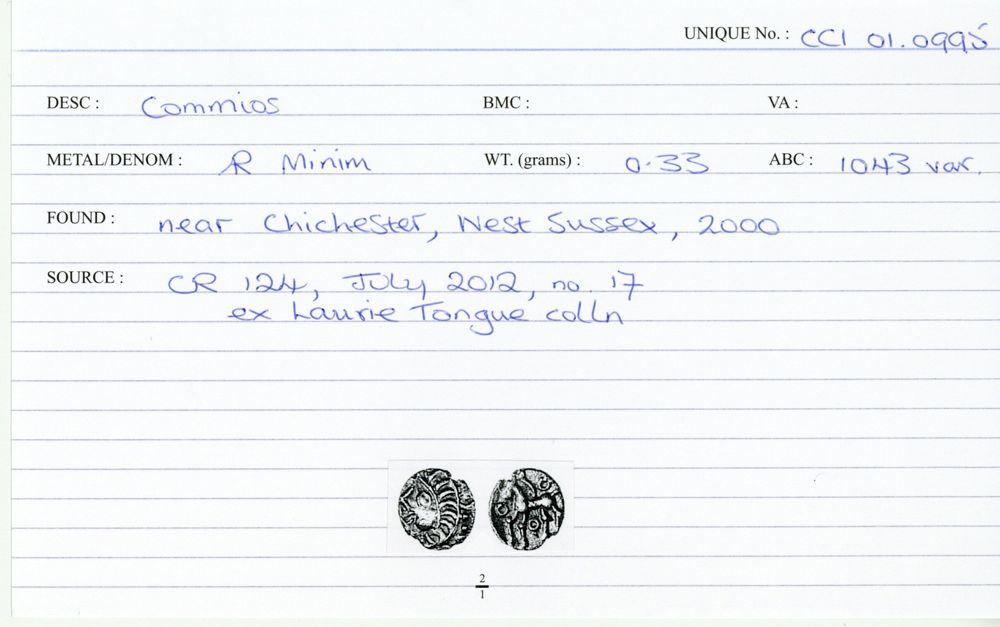 UNIQUE No. : CCI 01.0995
DESC : Commios BMC : VA :
METAL/DENOM : R Minim WT. (grams) : 0.33 ABC : 1043 var.
FOUND : near Chichester, West Sussex, 2000
SOURCE : CR 124, July 2012, no. 17
ex Laurie Tongue colln
2
1